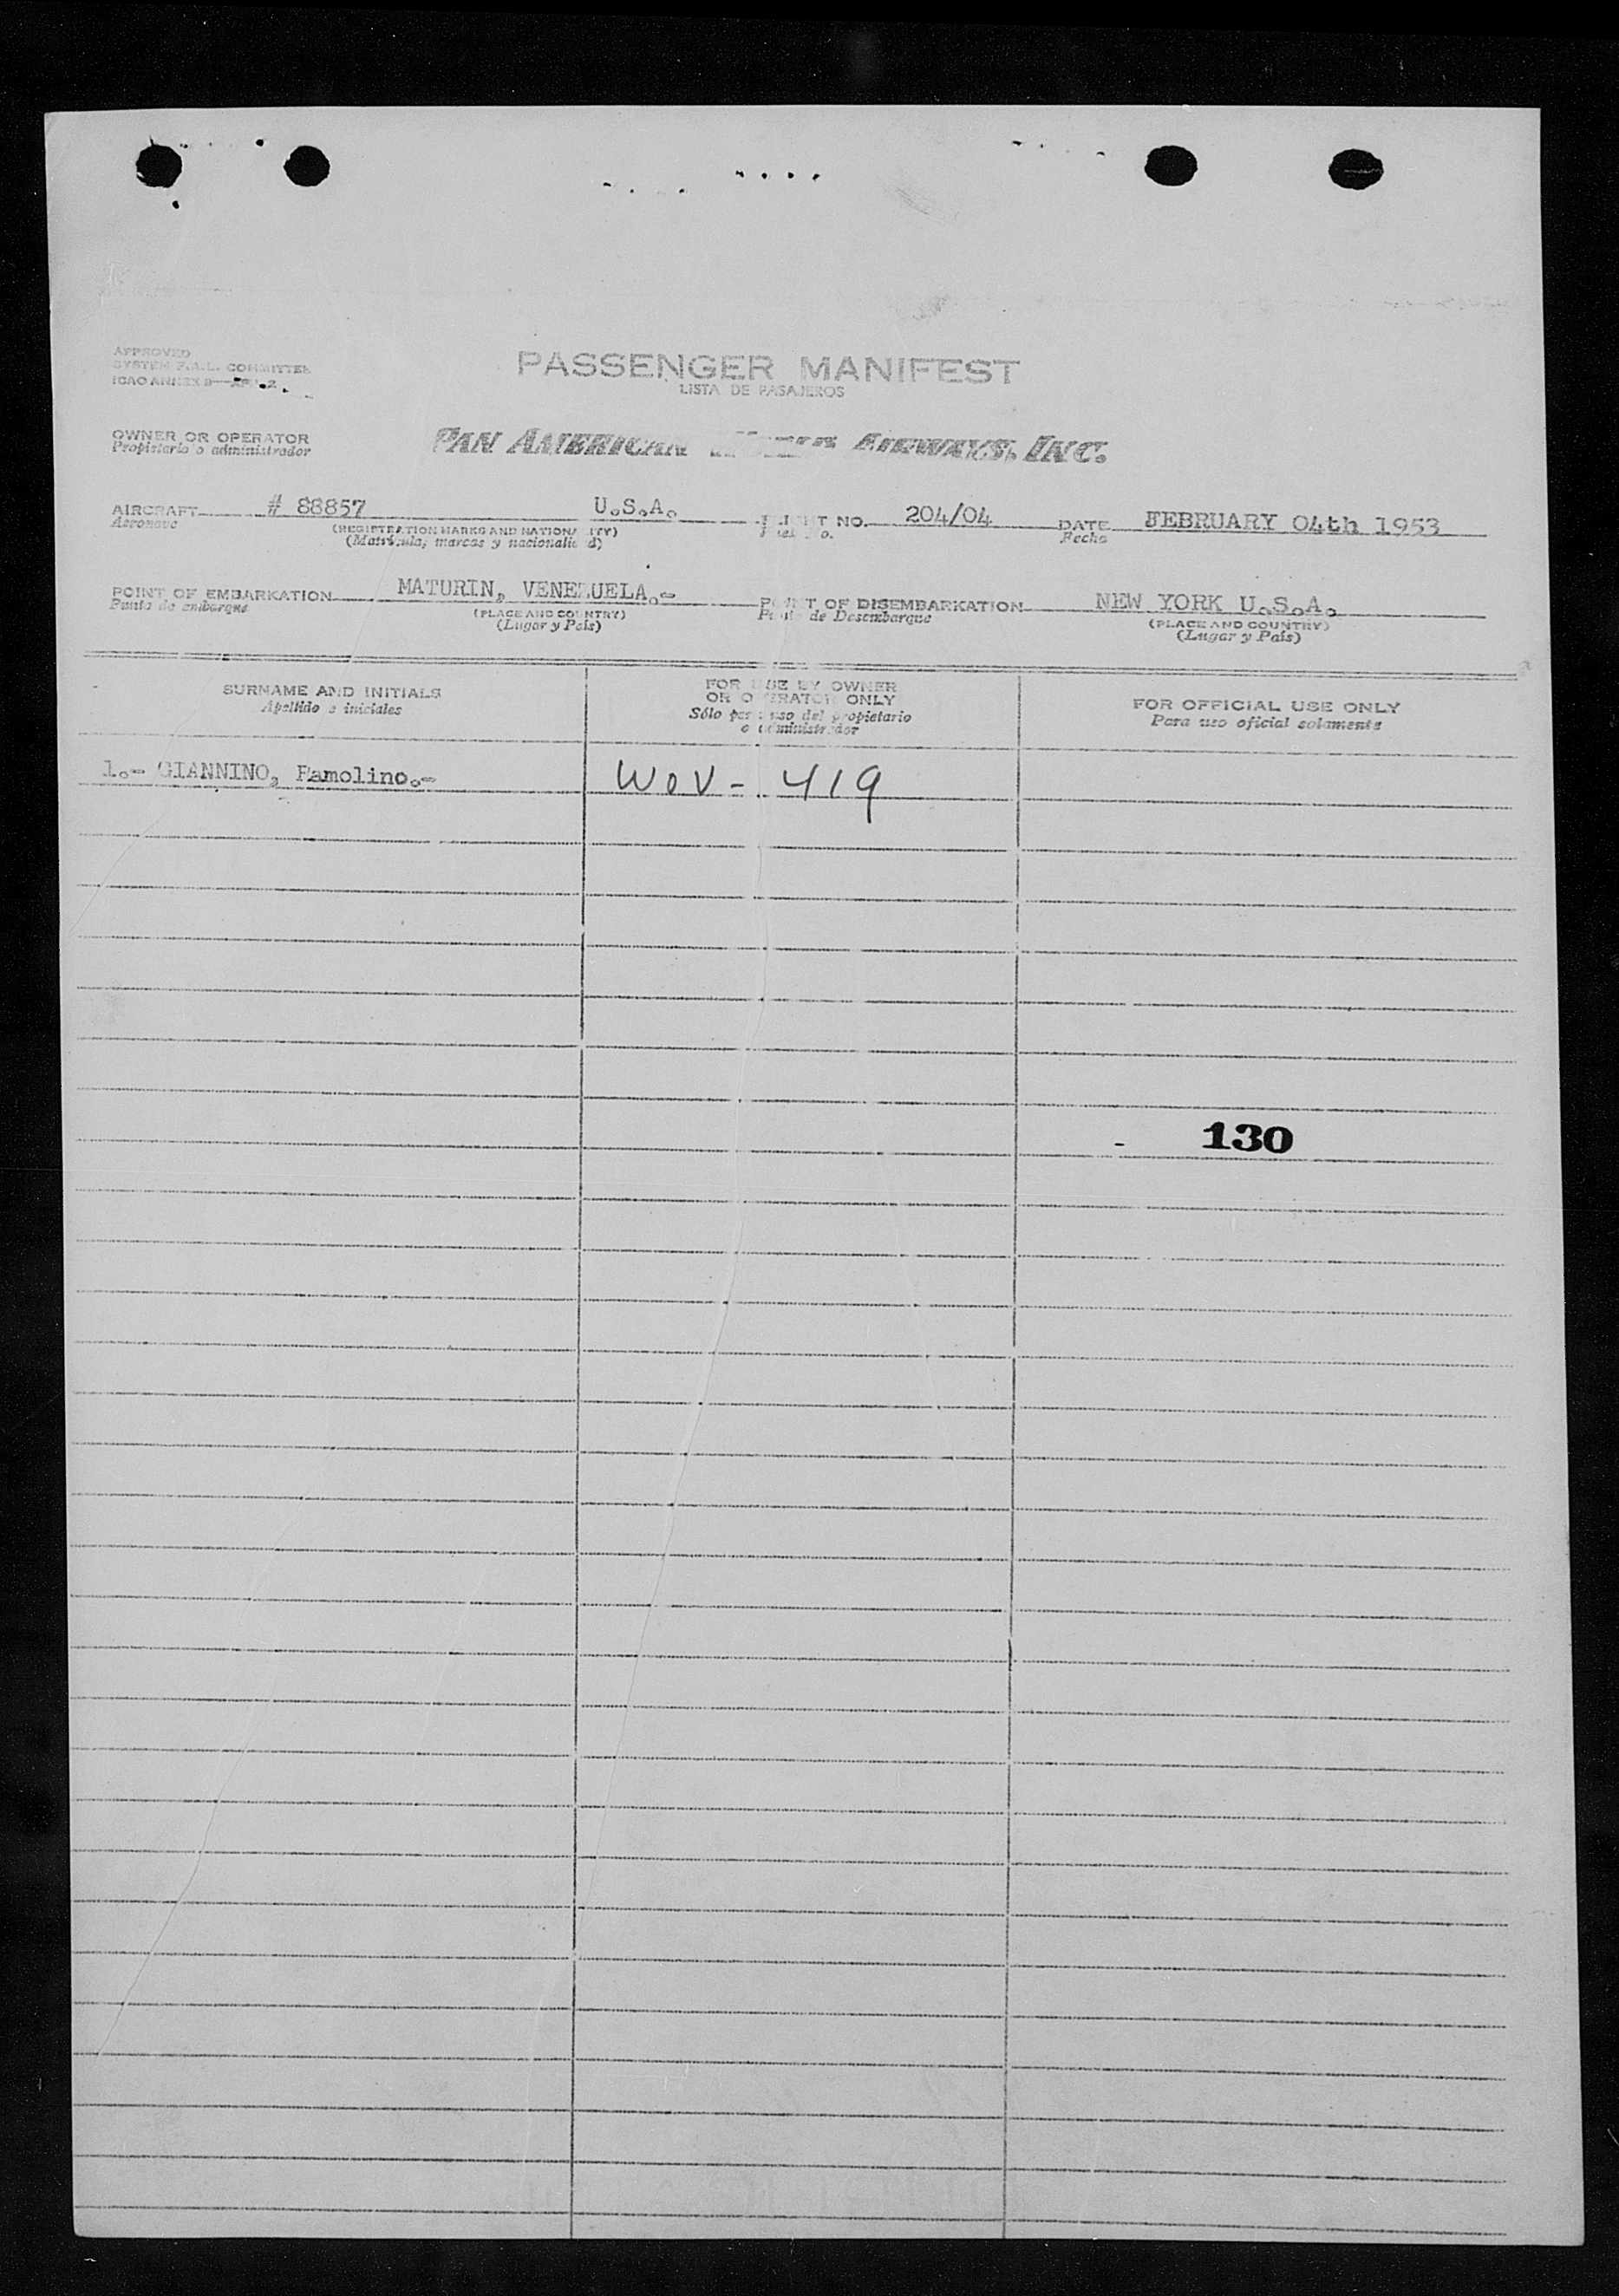 APPROVED
SYSTEM F.A.L. COMMITTEE
ICAO ANNEX 9
PASSENGER MANIFEST
LISTA DE PASAJEROS
OWNER OR OPERATOR
Propietario o administrador
PAN AMERICAN AIRWAYS, INC.
AIRCRAFT # 88857 U.S.A. FLIGHT NO. 204/04 DATE FEBRUARY 04th 1953
Aeronave (REGISTRATION MARKS AND NATIONALITY) Fecha
(Matrícula, marcas y nacionalidad)
POINT OF EMBARKATION MATURIN, VENEZUELA.- POINT OF DISEMBARKATION NEW YORK U.S.A.
Punto de embarque (PLACE AND COUNTRY) Punto de Desembarque (PLACE AND COUNTRY)
(Lugar y País) (Lugar y País)
SURNAME AND INITIALS
Apellido e iniciales
FOR USE BY OWNER
OR OPERATOR ONLY
Sólo para uso del propietario
o administrador
FOR OFFICIAL USE ONLY
Para uso oficial solamente
1.- GIANNINO, Famolino.- WOV - 419
- 130